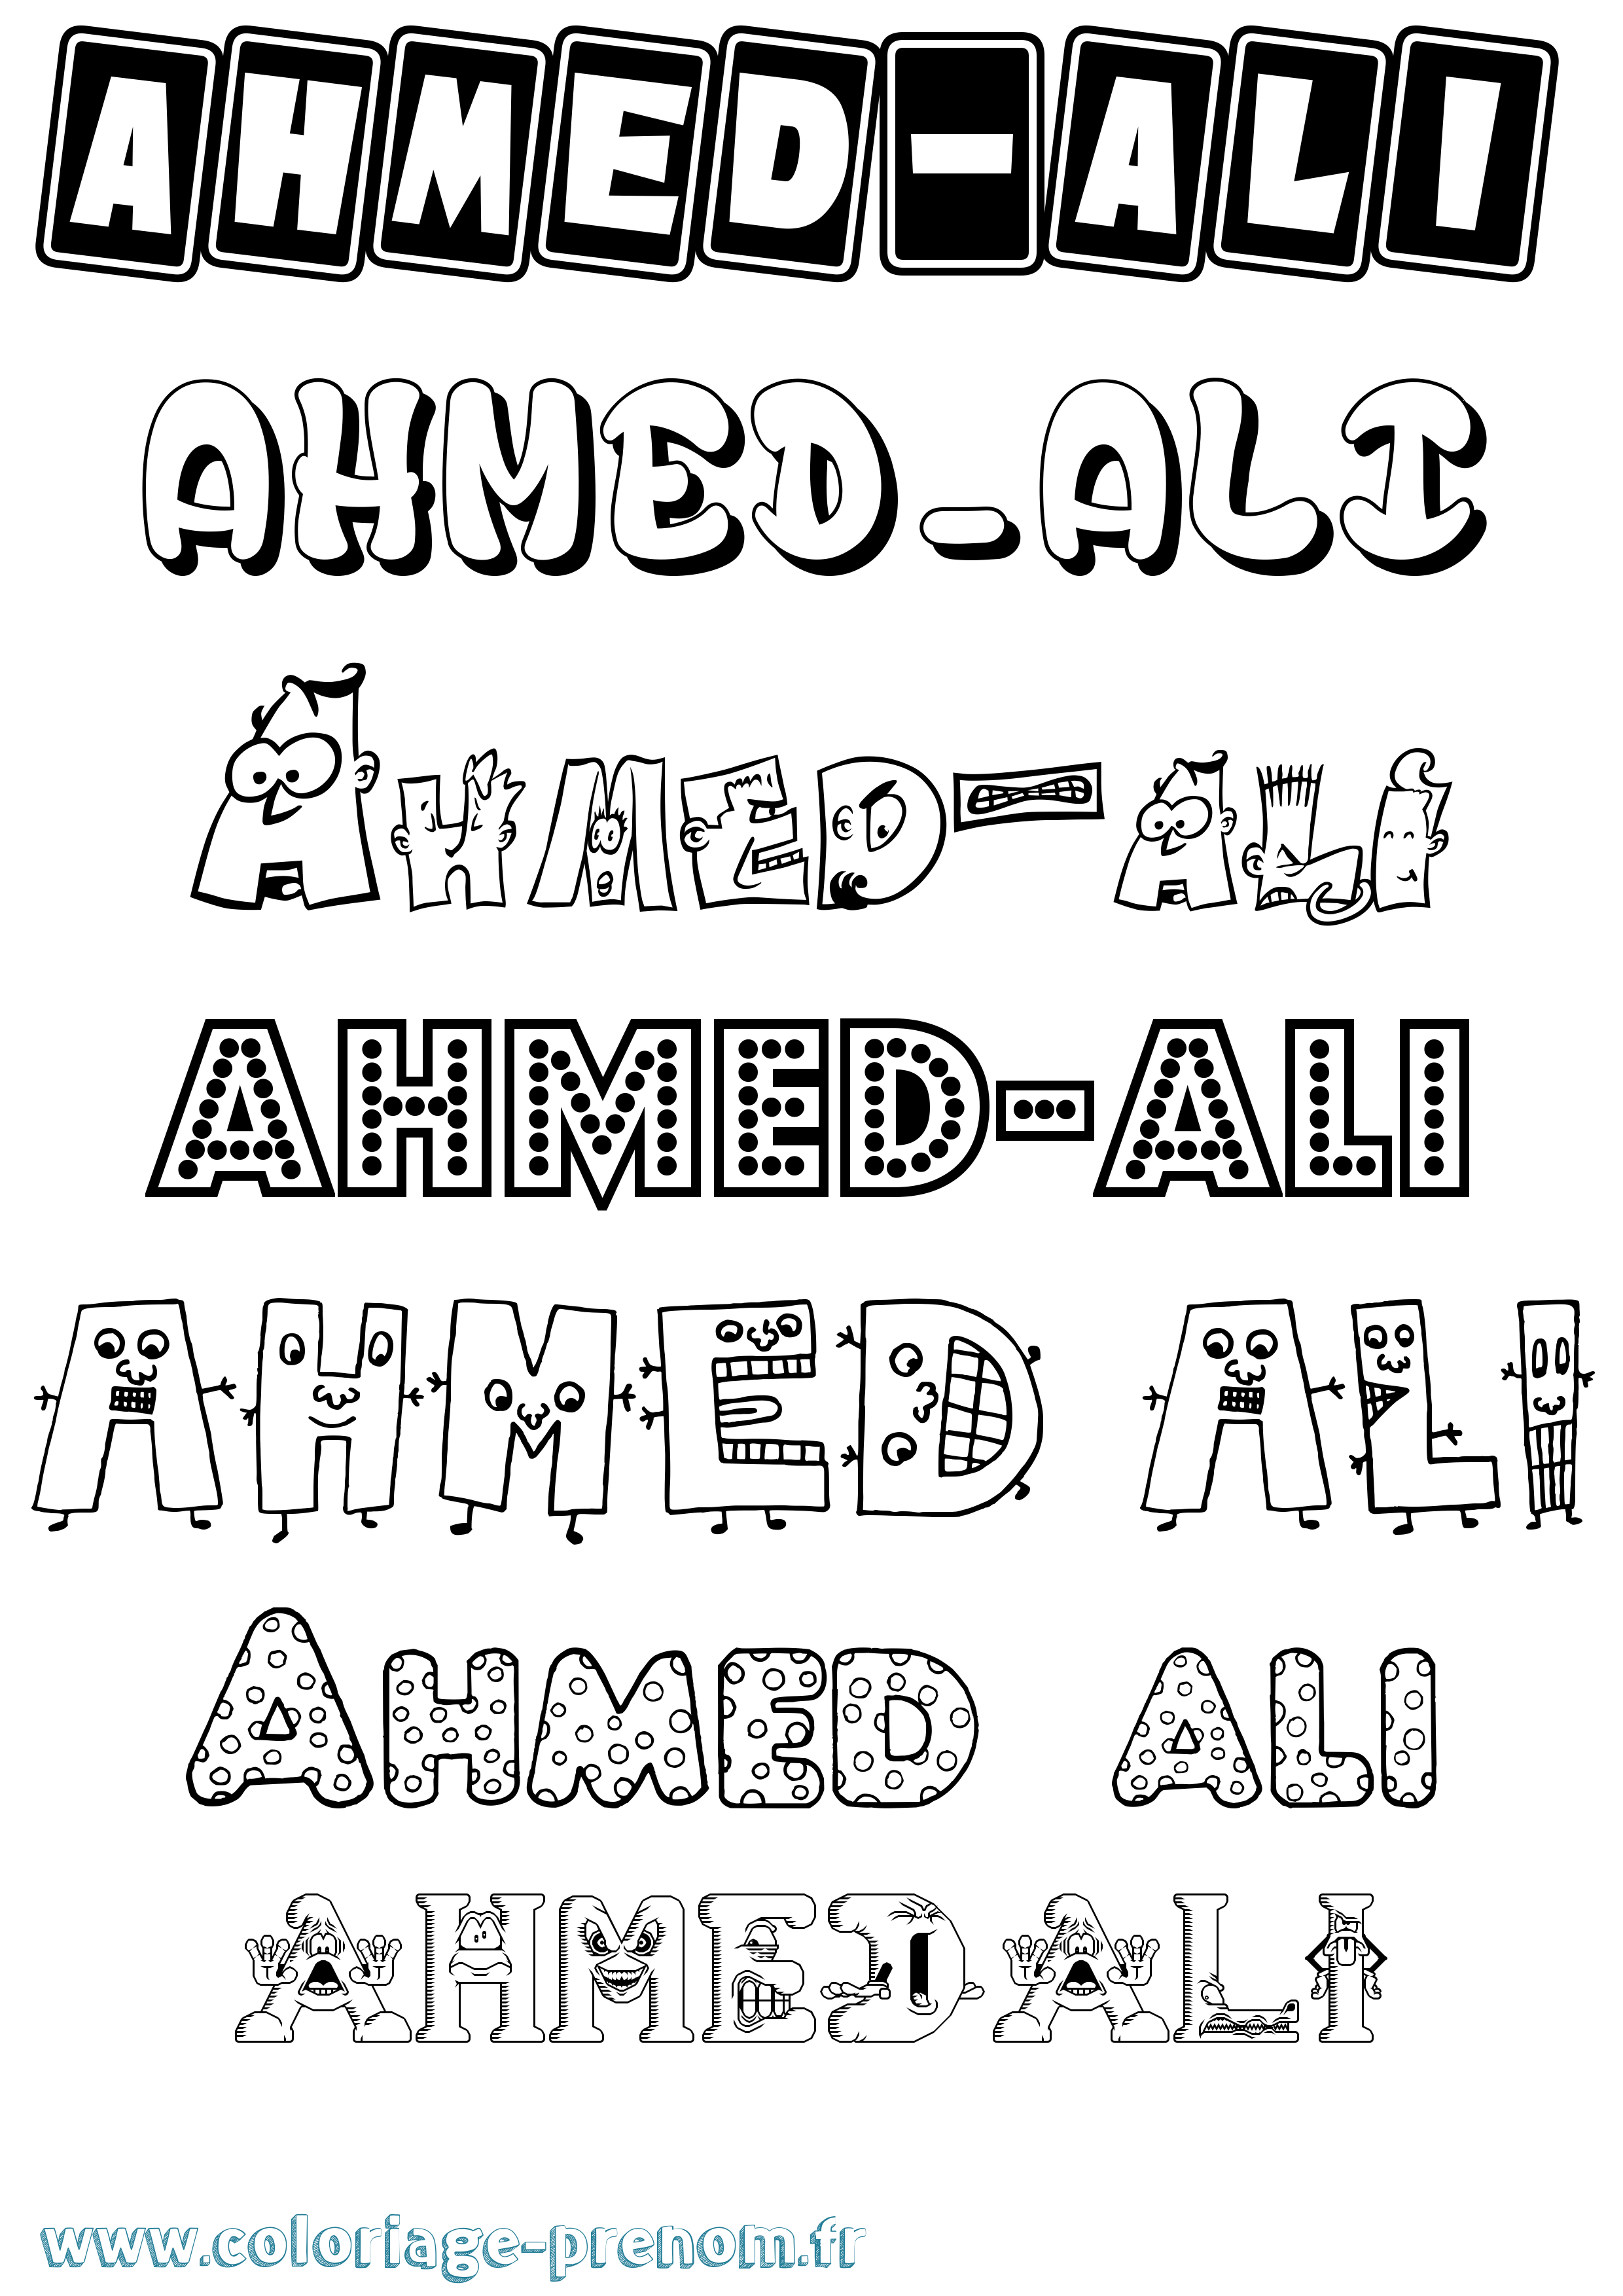 AHMED-ALI
AHMED-ALI
AHMED-ALI
AHMED-ALI
AHMED ALI
AHMED ALI
AHMEDALI
www.coloriage-prenom.fr